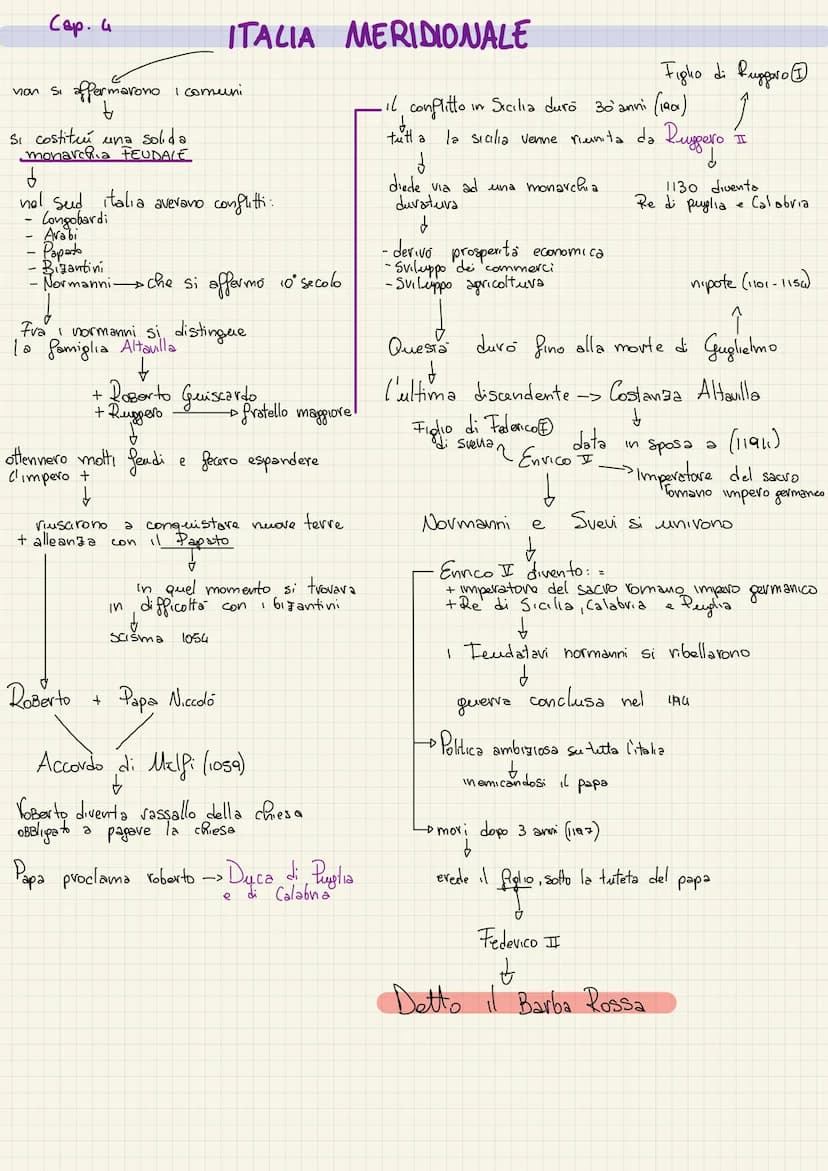 Cap. 4
ITALIA MERIDIONALE
non si affermarono i comuni
si costituí una solida
monarchia FEUDALE
nel sud italia avevano conflitti:
- Longobardi
- Arabi
- Papato
- Bizantini
- Normanni → che si affermó 10° secolo
Fra i normanni si distingue
la famiglia Altavilla
+ Roberto Guiscardo
+ Ruggero → fratello maggiore
ottennero molti feudi e fecero espandere
l'impero +
riuscirono a conquistare nuove terre
+ alleanza con il Papato
in quel momento si trovava
in difficoltá con i bizantini
scisma 1054
Roberto + Papa Niccoló
Accordo di Melfi (1059)
Roberto diventa vassallo della chiesa
obbligato a pagare la chiesa
Papa proclama roberto → Duca di Puglia
e di Calabria
Figlio di Ruggero I
il conflitto in Sicilia duró 30 anni
tutta la sicilia venne riunita da Ruggero II
diede via ad una monarchia
duratura
1130 divento
Re di puglia e Calabria
- derivó prosperitá economica
- Sviluppo dei commerci
- Sviluppo agricoltura
nipote (1101 - 1154)
Questa duró fino alla morte di Guglielmo
l'ultima discendente → Costanza Altavilla
Figlio di Federico I
di svevia
data in sposa a
Enrico → Imperatore del sacro
romano impero germanico
Normanni e Svevi si univono
Enrico divento: =
+ imperatore del sacro romano impero germanico
+ Re di Sicilia, Calabria e Puglia
i Feudatari normanni si ribellarono
guerra conclusa nel
Politica ambiziosa su tutta l'italia
inemicandosi il papa
morí dopo 3 anni (1197)
erede il figlio, sotto la tuteta del papa
Federico II
Detto il Barba Rossa